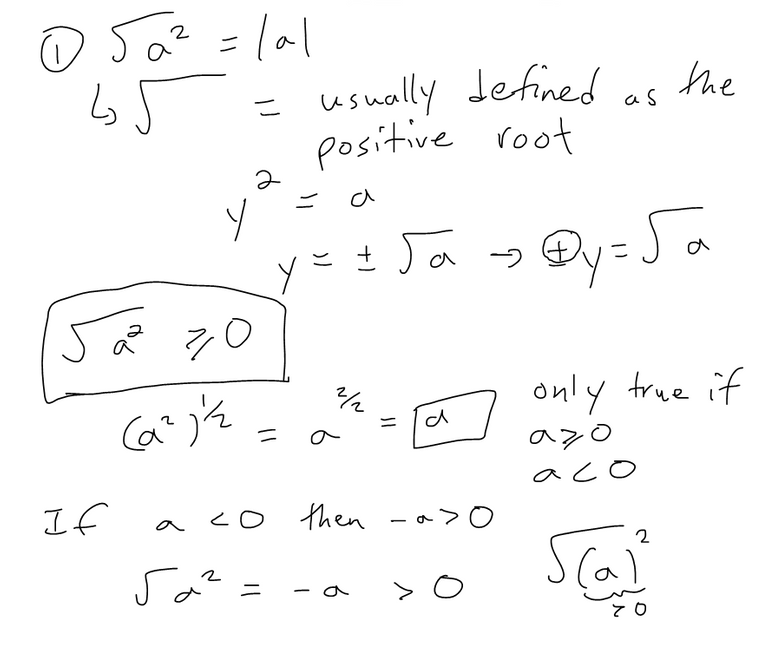 ① √a² = |a|
↳ √ = usually defined as the
positive root
y² = a
y = ± √a → ⊕y = √a
√a² ≥ 0
(a²)^1/2 = a^2/2 = a only true if
a ≥ 0
a < 0
If a < 0 then -a > 0
√a² = -a > 0 √(a)²